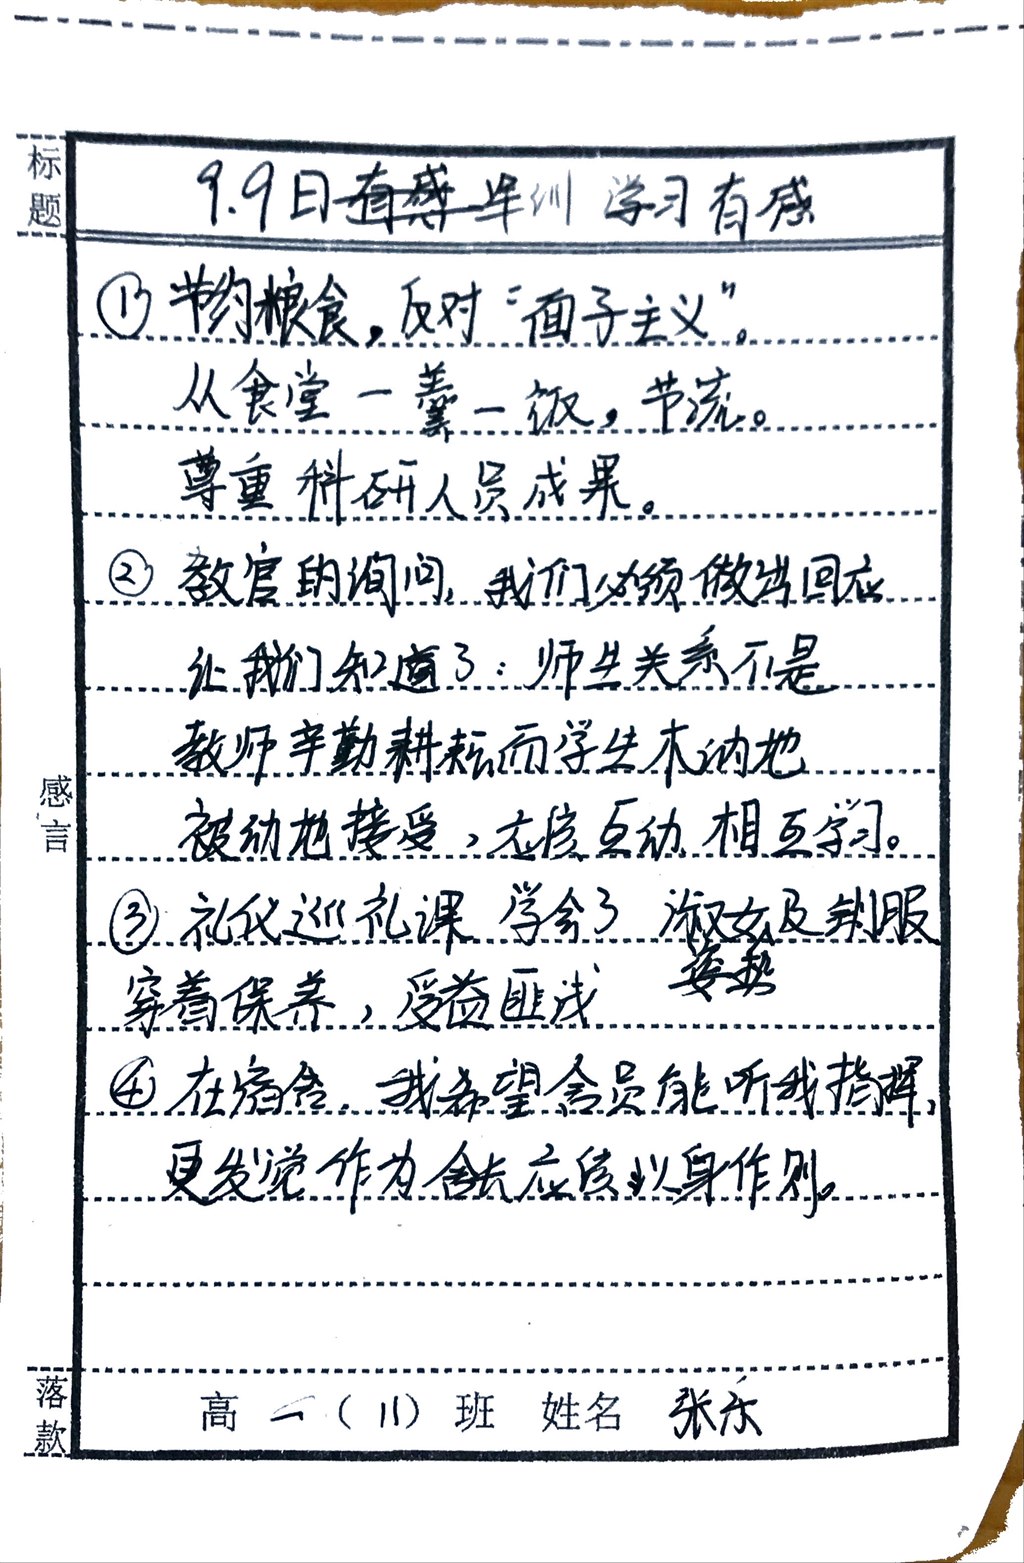 标题
9.9日军训 学习有感
① 节约粮食，反对“面子主义”。
从食堂一羹一饭，节流。
尊重科研人员成果。
② 教官的询问，我们必须做出回应
让我们知道了：师生关系不是
教师辛勤耕耘而学生木讷地
被动地接受，应该互动 相互学习。
感言
③ 礼仪巡礼课 学会了 淑女姿势及制服
穿着保养，受益匪浅
④ 在宿舍，我希望舍员能听我指挥，
更发觉作为舍长应该以身作则。
落款
高一（11）班 姓名 张乐